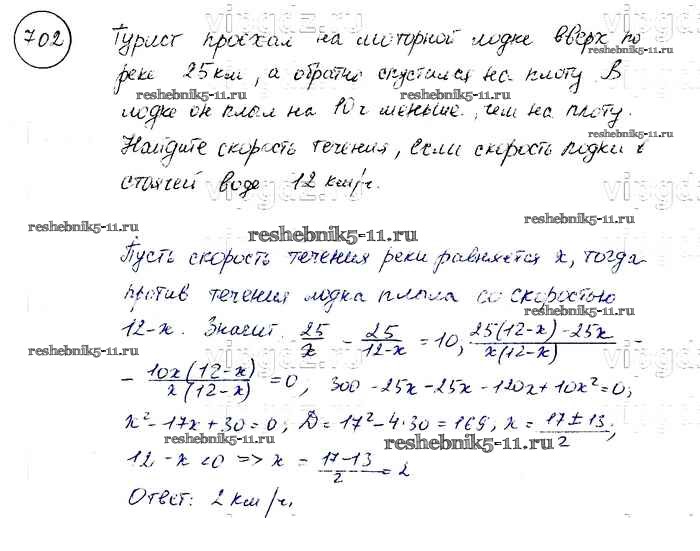 702
Турист проехал на моторной лодке вверх по
реке 25 км, а обратно спустился на плоту В
reshebnik5-11.ru
лодке он плыл на 10 ч меньше, чем на плоту.
reshebnik5-11.ru
Найдите скорость течения, если скорость лодки в
стоячей воде 12 км/ч.
reshebnik5-11.ru
reshebnik5-11.ru
reshebnik5-11.ru
Пусть скорость течения реки равняется x, тогда
против течения лодка плыла со скоростью
reshebnik5-11.ru
12-x. Значит 25/x - 25/12-x = 10, 25(12-x)-25x/x(12-x) -
reshebnik5-11.ru
- 10x(12-x)/x(12-x) = 0, 300-25x-25x-120x+10x²=0;
x²-17x+30=0; D=17²-4·30=169, x=17±13/2;
reshebnik5-11.ru
reshebnik5-11.ru
12-x<0 => x=17-13/2=2
Ответ: 2 км/ч.
reshebnik5-11.ru